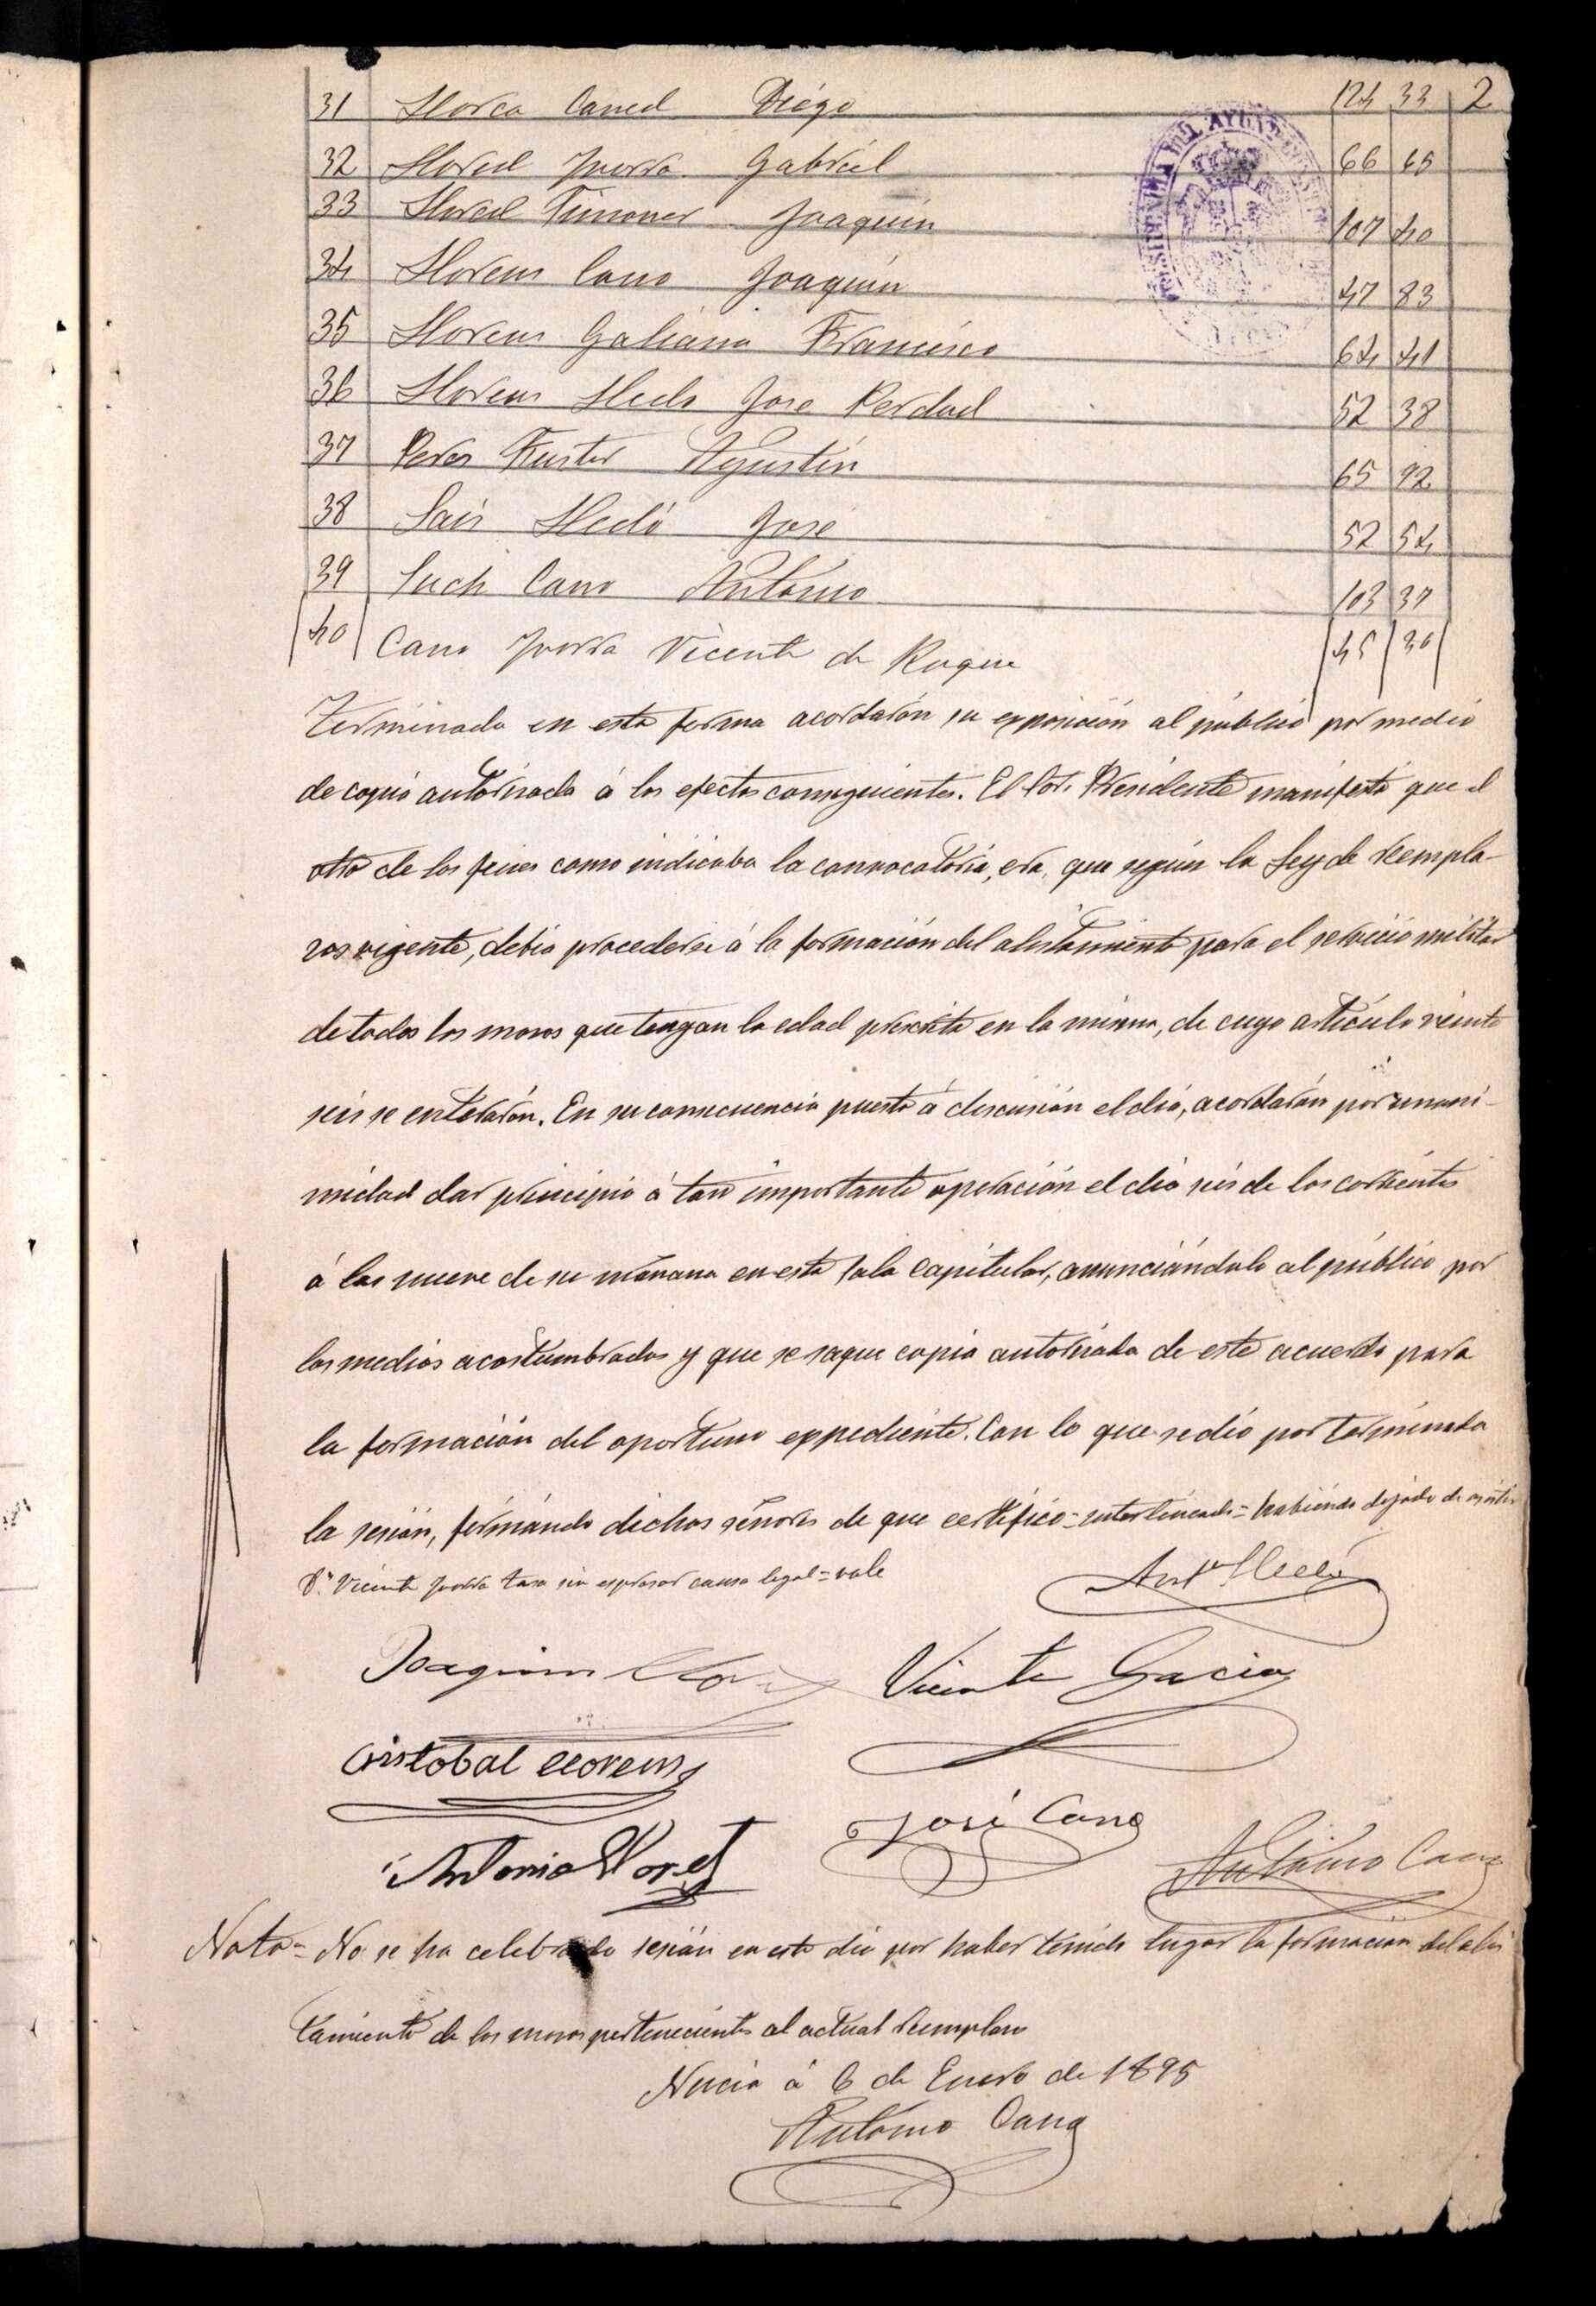 2
31 Llorca Caned Diégo 124 33
32 Lloret Yvorra Gabriél 66 65
33 Lloret Timoner Joaquin 107 40
34 Llorens Cano Joaquín 47 83
35 Llorens Galiana Francisco 64 41
36 Llorens Lledo Jose Perdad 52 38
37 Peres Fuster Agustín 65 92
38 Sais Lledó José 52 54
39 Such Cano António 103 37
40 Cano Yvorra Vicente de Roque 45 30
Terminada en esta forma acordarón su exposición al público por medio
de copia autorisada á los efectos consiguientes. El Sor. Presidente manifestó que el
otro de los fines como indicaba la convocatoria, era, que según la Ley de Reempla-
zos vigente, debia procederse á la formación del alistamiento para el servicio militar
de todos los mosos que tengan la edad prescrita en la misma, de cuyo artículo veinte
seis se enterarón. En su consecuencia puesto á discusión el dia, acordarón por unani-
midad dar principio á tan importante operación el dia seis de los corrientes
á las nueve de su mañana en esta Sala Capitular, anunciándolo al público por
los medios acostumbrados y que se saque copia autorisada de este acuerdo para
la formación del oportuno expediente. Con lo que se dió por terminada
la sesión, firmándo dichos señores de que certifico = enterlineado = habiendo dejado de asistir
Dn Vicente Yvorra sin espresar causa legal = vale
Anto Lledó
Joaquin Vicente Gacia
Cristobal llorens
José Cano
Antonio Lloret António Cano
Nota = No se ha celebrado sesión en este dia por haber tenido lugar la formación del alis
tamiento de los mosos pertenecientes al actual Reemplaso
Nucia á 6 de Enero de 1895
António Cano